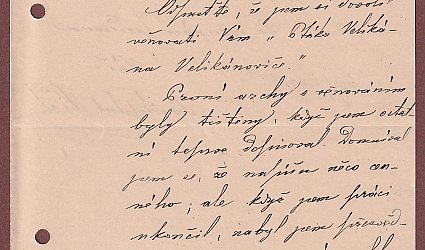 Odpusťte, že jsem si dovolil
věnovati Vám „Ptáka Veliká-
na Velikánoviče."
První archy s věnováním
byly tištěny, když jsem ostat-
ní teprve dopisoval. Domníval
jsem se, že napíšu něco cen-
ného; ale když jsem práci
ukončil, nabyl jsem přesvěd-